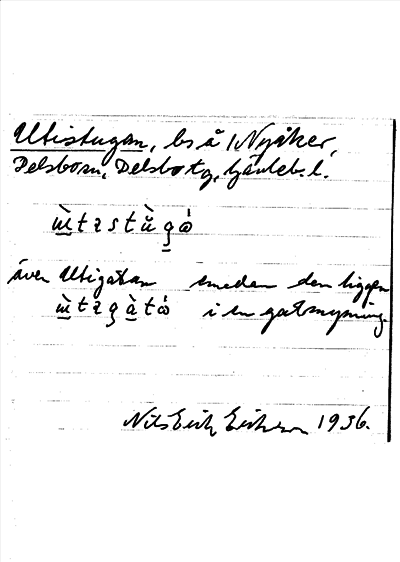 Utistugan, bs å /Nyåker,
Delsbo sn, Delsbo tg, Gävleb. l.
även Utigatan emedan den ligger
i en gatmynning
Nils Erik Erikson 1936.